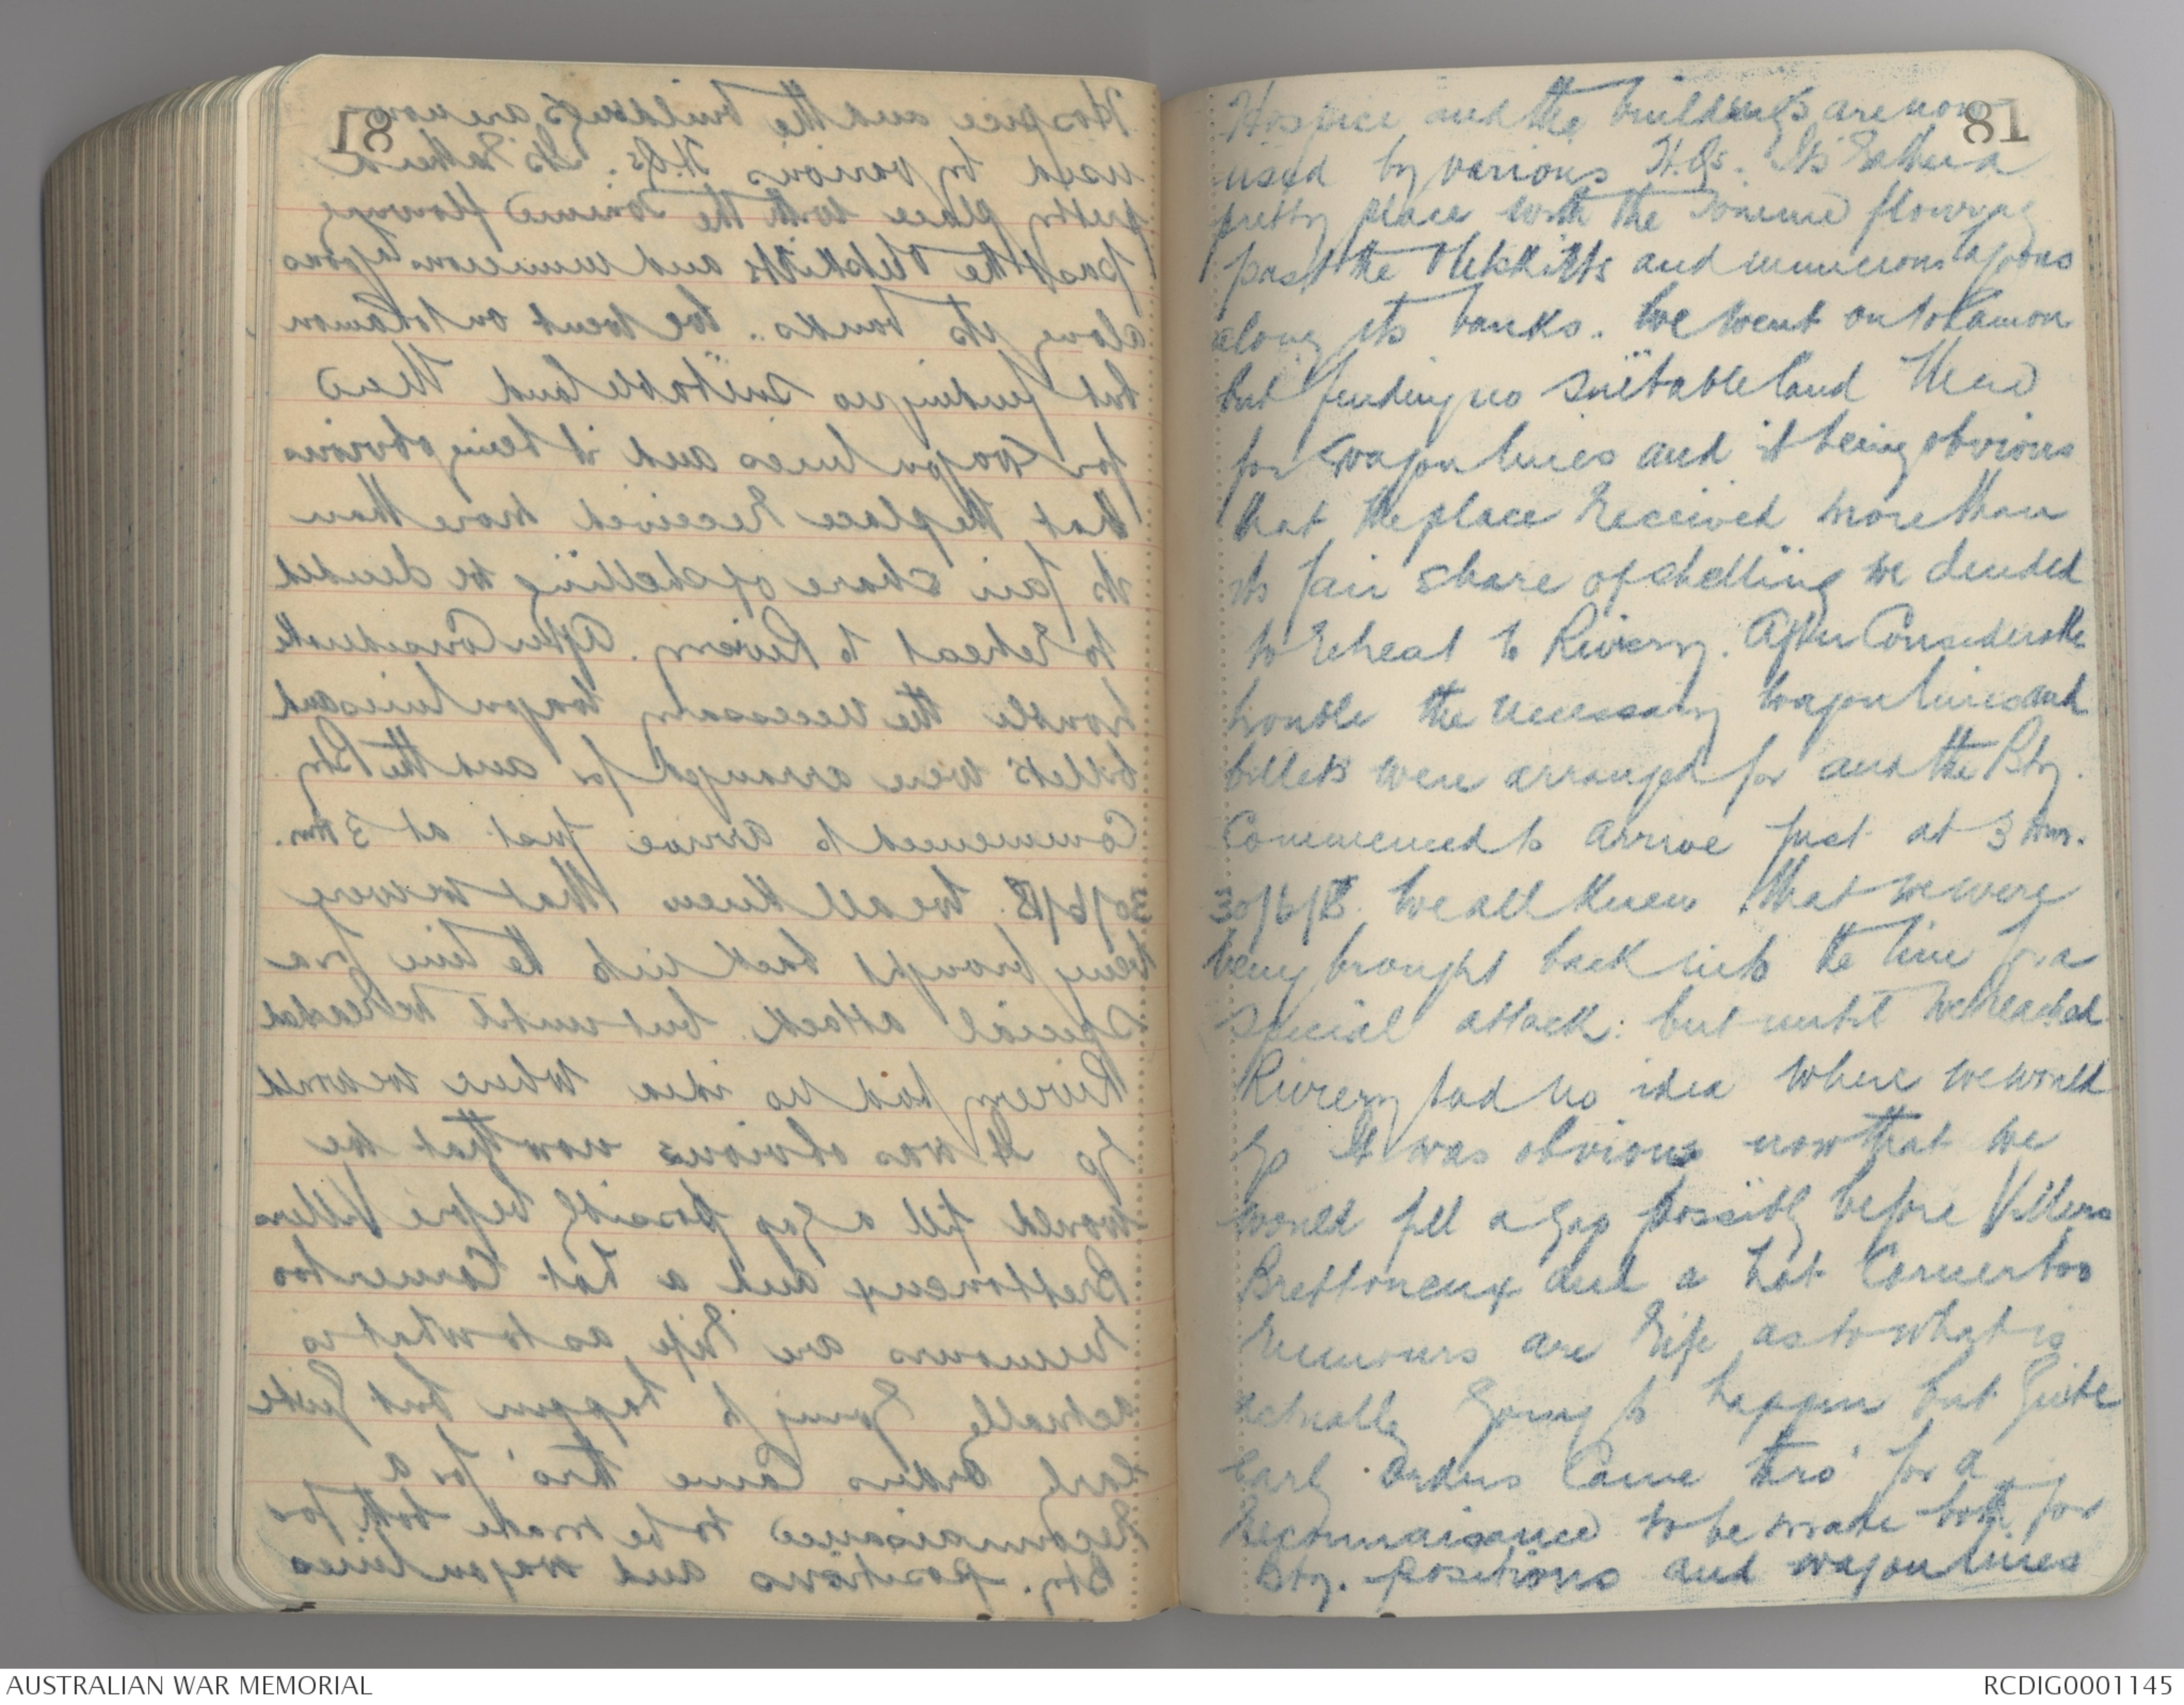 81
Hospice and the buildings are now
used by various H.Qs. Its rather a
pretty place with the Somme flowing
past the and numerous lagoons
along its banks. We went on to Camon
but finding no suitable land there
for wagon lines and it being obvious
that the place received more than
its fair share of shelling we decided
to retreat to Rivery. After Considerable
trouble the necessary wagon lines and
billets were arranged for and the Bty.
Commenced to arrive just at 3 am.
30/6/18. We all knew that we were
being brought back into the line for a
special attack: but until we reached
Rivery had no idea where we would
go It was obvious now that we
would fill a gap possibly before Villers
Brettoneux and a hot Corner too
rumours are rife as to what is
actually going to happen but quite
early orders Came thro' for a
reconnaisance to be made both for
Bty. positions and wagon lines
AUSTRALIAN WAR MEMORIAL
RCDIG0001145